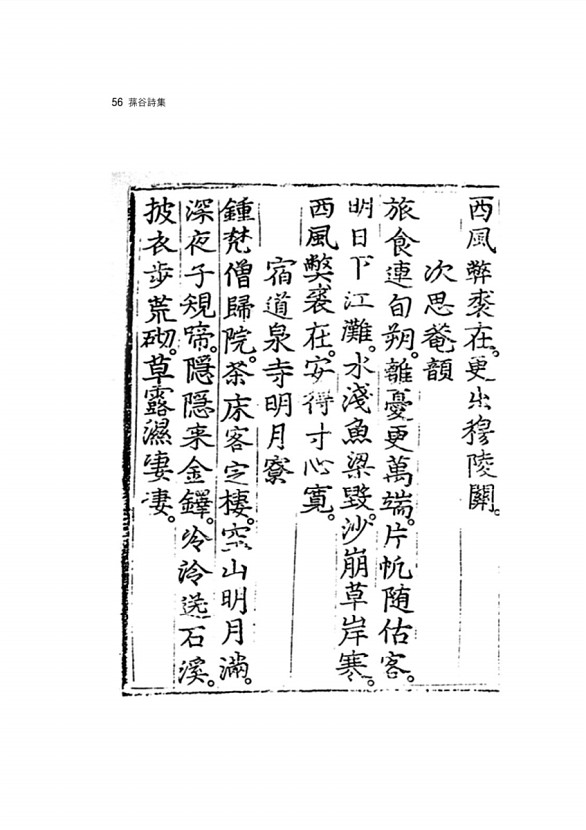 56 蓀谷詩集
西風弊裘在。更出穆陵關。
次思菴韻
旅食連旬朔。離憂更萬端。片帆随估客。
明日下江灘。水淺魚梁毀。沙崩草岸寒。
西風弊裘在。安得寸心寬。
宿道泉寺明月寮
鍾梵僧歸院。茶床客定棲。空山明月滿。
深夜子規啼。隱隱来金鐸。冷冷送石溪。
披衣步荒砌。草露濕凄凄。